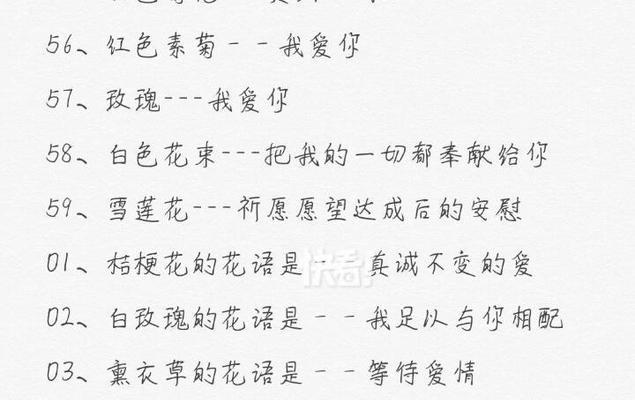 56、红色素菊--我爱你
57、玫瑰---我爱你
58、白色花束---把我的一切都奉献给你
59、雪莲花---祈愿愿望达成后的安慰
01、桔梗花的花语是--真诚不变的爱
快看
02、白玫瑰的花语是--我足以与你相配
03、熏衣草的花语是--等待爱情